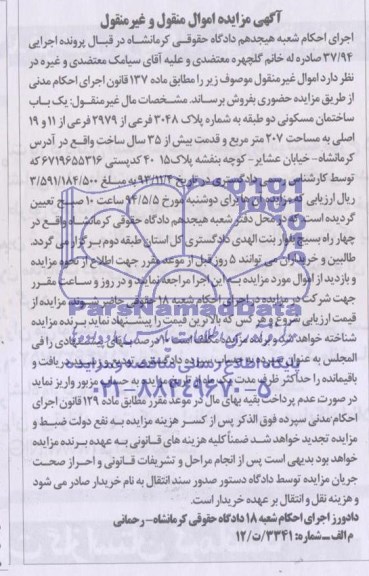 آگهی مزایده اموال منقول و غیرمنقول
اجرای احکام شعبه هیجدهم دادگاه حقوقی کرمانشاه در قبال پرونده اجرایی
۳۷/۹۴ صادره له خانم گلچهره معتضدی و علیه آقای سیامک معتضدی و غیره در
نظر دارد اموال غیرمنقول موصوف زیر را مطابق ماده ۱۳۷ قانون اجرای احکام مدنی
از طریق مزایده حضوری بفروش برساند. مشخصات مال غیرمنقول: یک باب
ساختمان مسکونی دو طبقه به شماره پلاک ۳۰۴۸ فرعی از ۲۹۷۹ فرعی از ۱۱ و ۱۹
اصلی به مساحت ۲۰۷ متر مربع و قدمت بیش از ۳۵ سال ساخت واقع در آدرس
کرمانشاه- خیابان عشایر- کوچه بنفشه پلاک ۱۵ ۴۰ کدپستی ۶۷۱۹۶۵۵۳۱۶ که
توسط کارشناس رسمی دادگستری در تاریخ ۹۳/۱۱/۴ به مبلغ ۳/۵۹۱/۱۸۴/۵۰۰
ریال ارزیابی که مزایده آن برای دوشنبه مورخ ۹۴/۵/۵ ساعت ۱۰ صبح تعیین
گردیده است. که در محل دفتر شعبه هیجدهم دادگاه حقوقی کرمانشاه واقع در
چهار راه بسیج بلوار بنت الهدی دادگستری کل استان طبقه دوم برگزار می گردد.
طالبین و خریداران می توانند ۵ روز قبل از موعد مقرر جهت اطلاع از نحوه مزایده
و بازدید از اموال مورد مزایده به این اجرا مراجعه نمایند و در روز و ساعت مقرر
جهت شرکت در مزایده در اجرای احکام شعبه ۱۸ حقوقی حاضر شوند. مزایده از
قیمت ارزیابی شروع و هر کس که بالاترین قیمت را پیشنهاد نماید برنده مزایده
شناخته خواهد شد و برنده مزایده مکلف است ۱۰ درصد بهای پیشنهادی را فی
المجلس به عنوان سپرده به حساب سپرده دادگستری تودیع و رسید دریافت و
باقیمانده را حداکثر ظرف مدت یک ماه از تاریخ مزایده به حساب مزبور واریز نماید
در صورت عدم پرداخت بقیه بهای مال در موعد مقرر مطابق ماده ۱۲۹ قانون اجرای
احکام مدنی سپرده فوق الذکر پس از کسر هزینه مزایده به نفع دولت ضبط و
مزایده تجدید خواهد شد ضمناً کلیه هزینه های قانونی به عهده برنده مزایده
خواهد بود بدیهی است پس از انجام مراحل و تشریفات قانونی و احراز صحت
جریان مزایده توسط دادگاه دستور صدور سند انتقال به نام خریدار صادر می شود
و هزینه نقل و انتقال بر عهده خریدار است.
دادورز اجرای احکام شعبه ۱۸ دادگاه حقوقی کرمانشاه- رحمانی
م الف_شماره: ۱۲/ت/۳۳۴۱
ParsNamadData
پایگاه اطلاع رسانی مناقصه و مزایده
۰۲۱-۸۸۳۴۹۶۷۰-۵